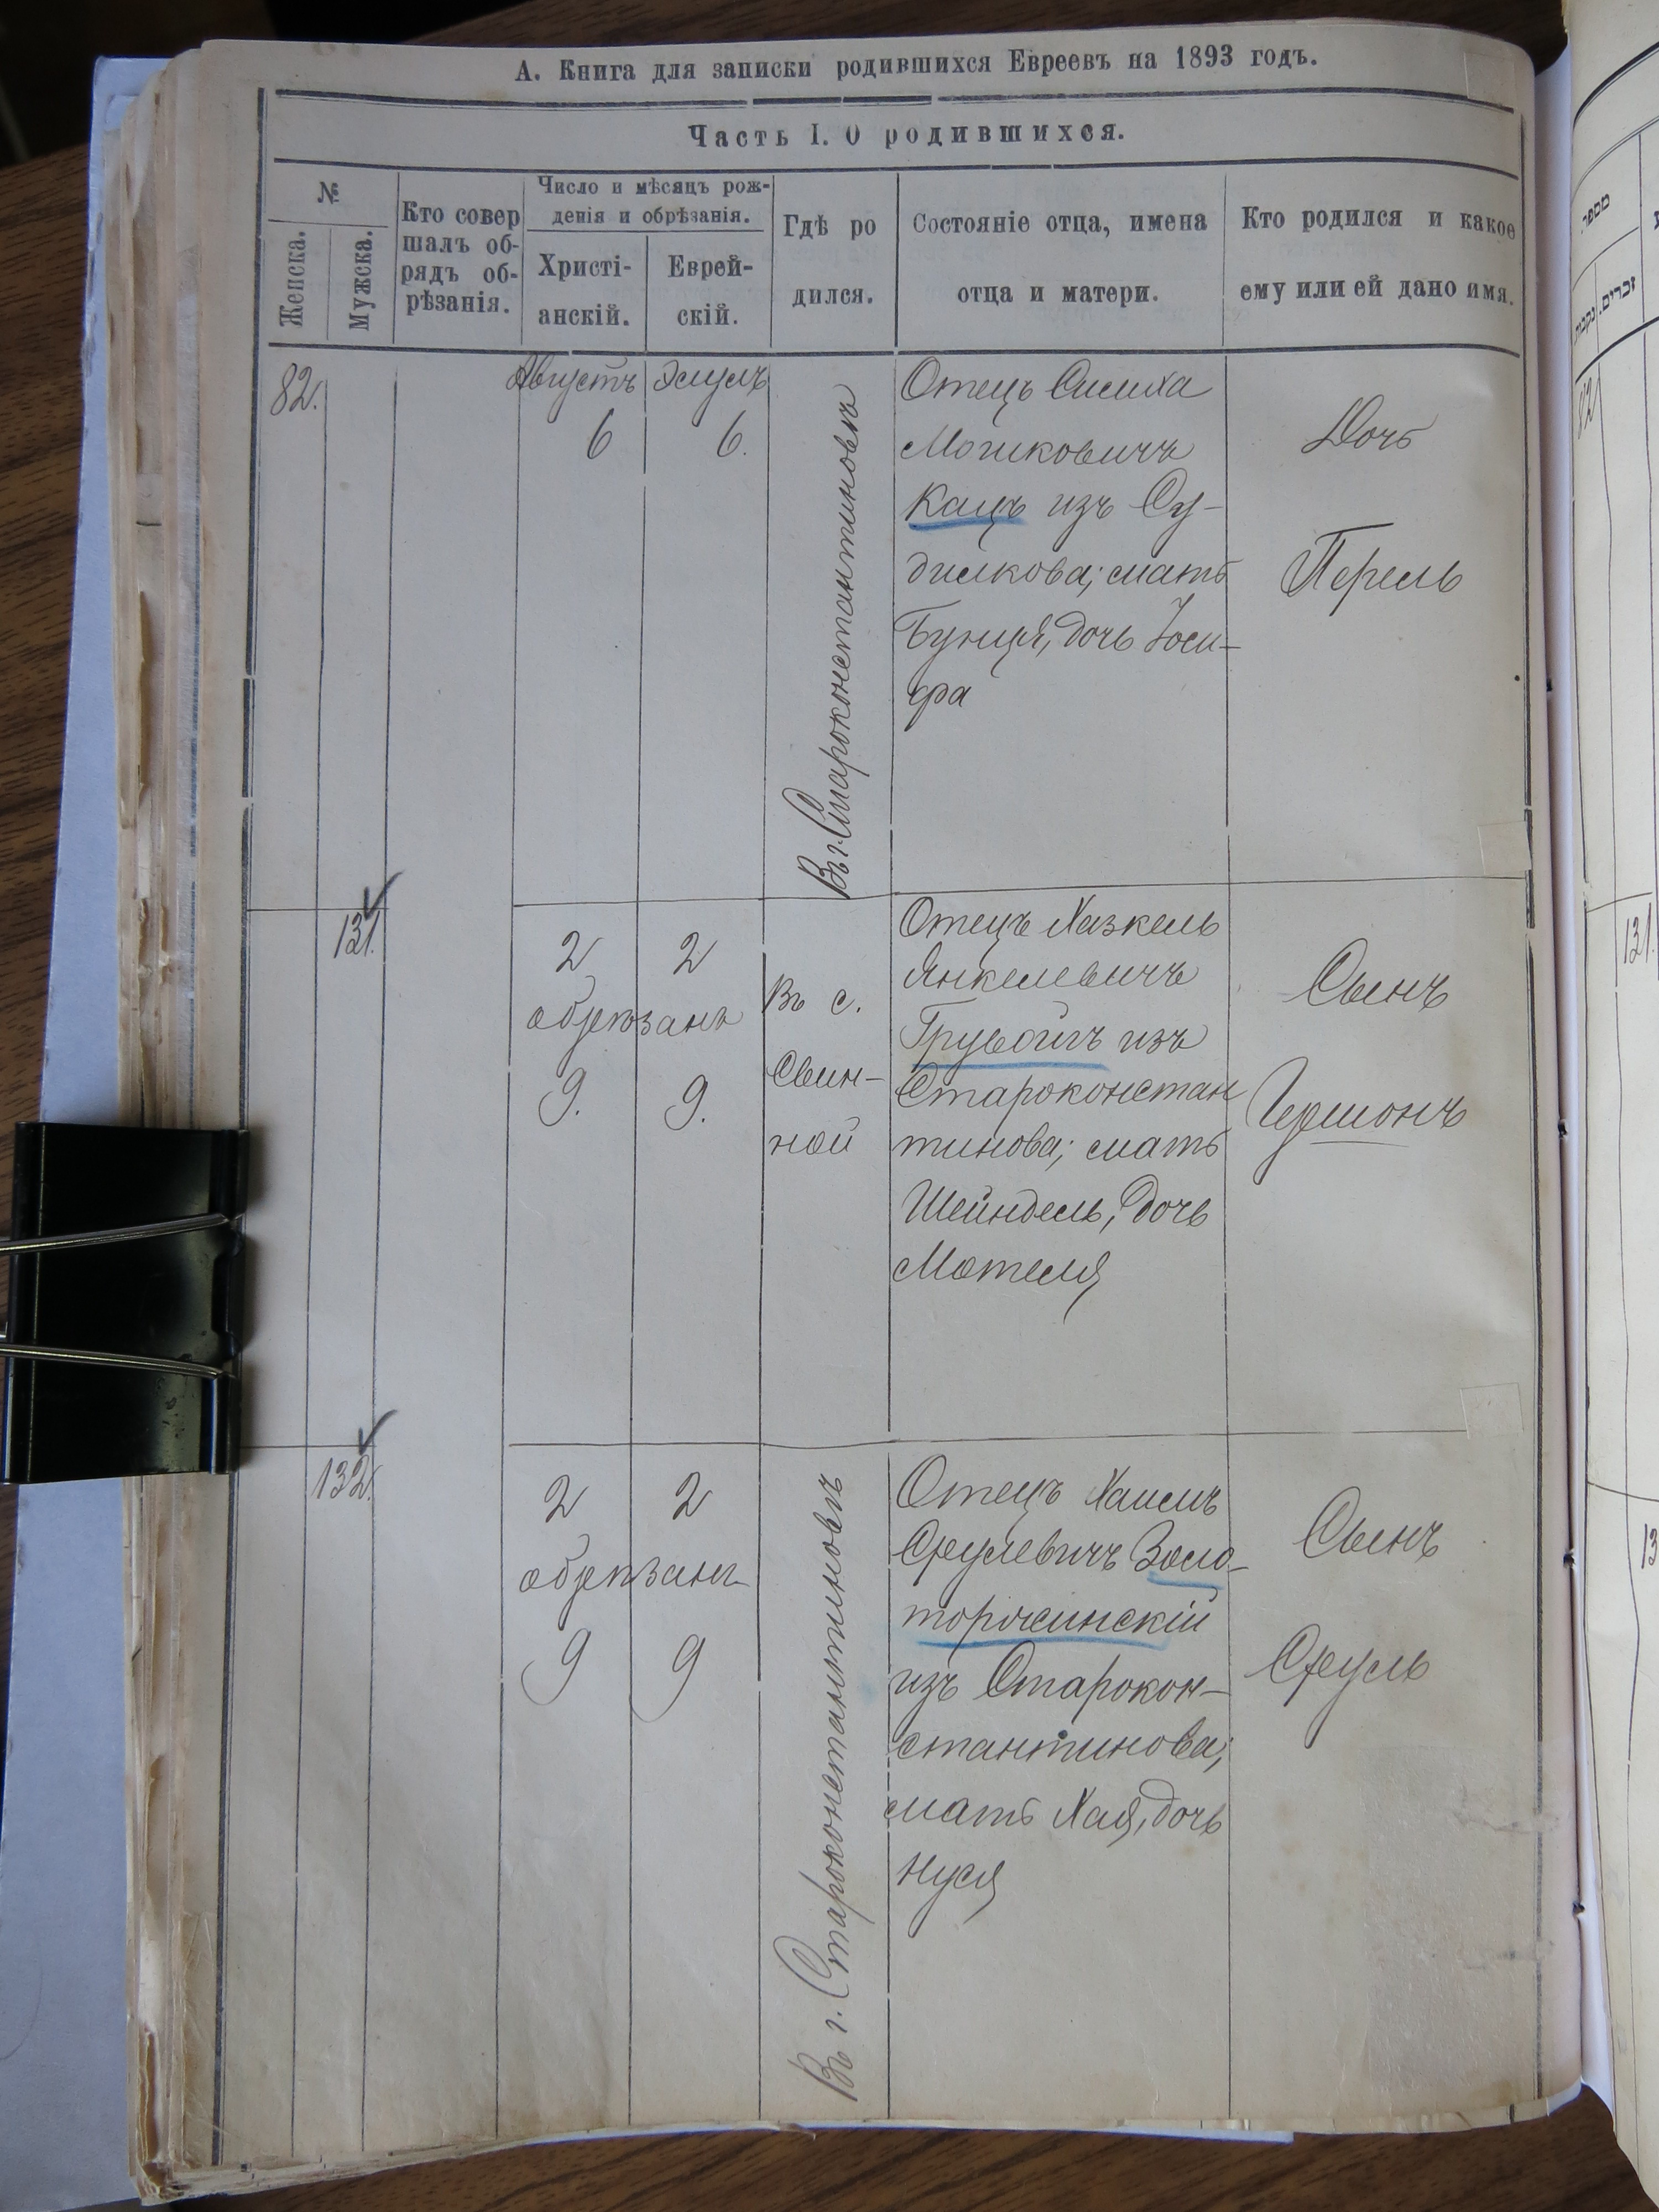 А. Книга для записки родившихся Евреевъ на 1893 годъ.
Часть I. О родившихся.
№
Женска.
Мужска.
Кто совер
шалъ об-
рядъ об-
рѣзанія.
Число и мѣсяцъ рож-
денія и обрѣзанія.
Христі-
анскій.
Еврей-
скій.
Гдѣ ро
дился.
Состояніе отца, имена
отца и матери.
Кто родился и какое
ему или ей дано имя.
82.
Августъ
6
Элулъ
6.
Въ г. Староконстантиновѣ
Отецъ Симха
Мошковичъ
Кацъ изъ Су-
дилкова; мать
Бунця, дочь Іоси-
фа
Дочь
Перель
131.
2 2
обрѣзанъ
9. 9.
Въ с.
Свин-
ной
Отецъ Хазкель
Янкелевичъ
изъ
Староконстан
тинова; мать
Шейндель, дочь
Мотеля
Сынъ
Гершонъ
132.
2 2
обрѣзанъ
9 9
Въ г. Староконстантиновѣ
Отецъ Хаимъ
Сруlевичъ Золо-
из Старокон-
стантинова;
мать Хая, дочь
Нуся
Сынъ
Сруль
מספר
זכרים.
נקבות
82
131.
13